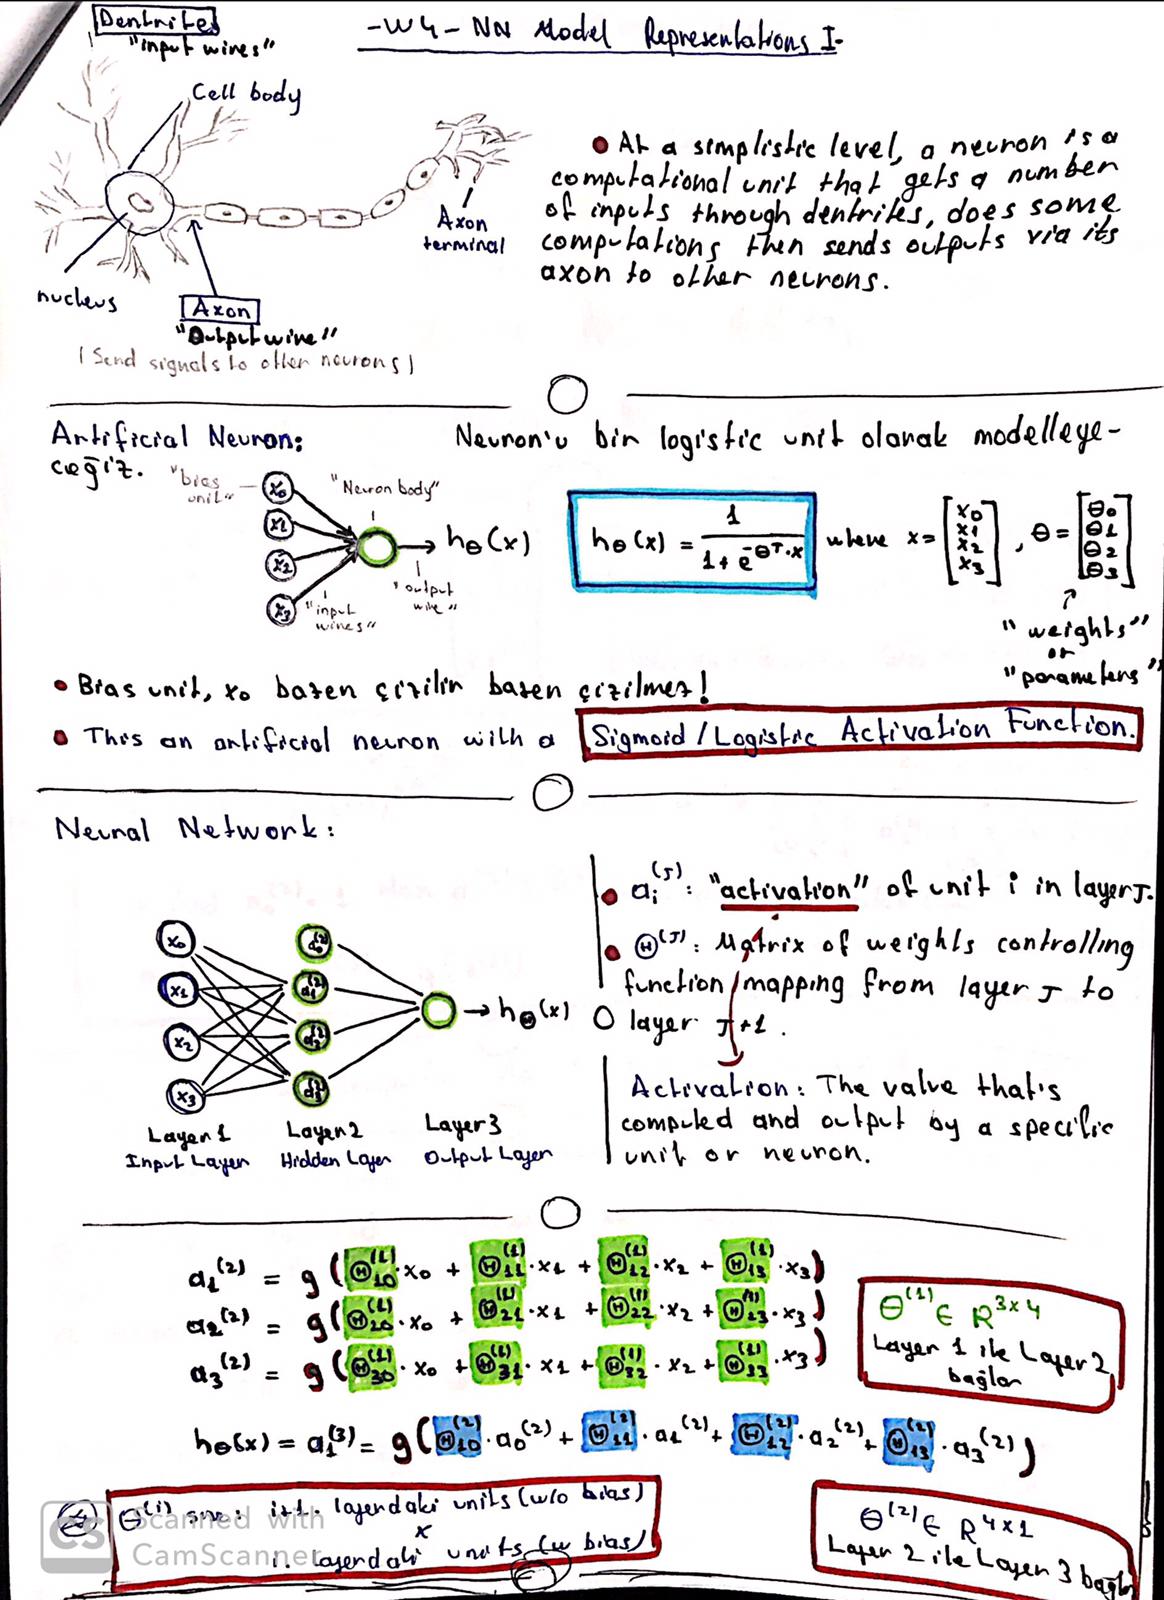 Dentrite
"input wires"
-W4- NN Model Representations I-
Cell body
Axon terminal
nucleus
Axon
"Output wire"
(Send signals to other neurons)
• At a simplistic level, a neuron is a
computational unit that gets a number
of inputs through dentrites, does some
computations then sends outputs via its
axon to other neurons.
Artificial Neuron: Neuron'u bir logistic unit olarak modelleye-
ceğiz.
"bias unit"
x₀
x₁
x₂
x₃
"Neuron body"
"input wires"
"output wire"
hθ(x)
hθ(x) = 1 / (1 + e^(-θᵀ·x)) where x = [x₀ x₁ x₂ x₃], θ = [θ₀ θ₁ θ₂ θ₃]
"weights"
or
"parameters"
• Bias unit, x₀ bazen çizilir bazen çizilmez!
• This an artificial neuron with a Sigmoid/Logistic Activation Function.
Neural Network:
x₀
x₁
x₂
x₃
a₀⁽²⁾
a₁⁽²⁾
a₂⁽²⁾
a₃⁽²⁾
hΘ(x)
Layer 1
Input Layer
Layer 2
Hidden Layer
Layer 3
Output Layer
• aᵢ⁽ᴶ⁾: "activation" of unit i in layer J.
• Θ⁽ᴶ⁾: Matrix of weights controlling
function mapping from layer J to
layer J+1.
Activation: The value that's
computed and output by a specific
unit or neuron.
a₁⁽²⁾ = g(Θ₁₀⁽¹⁾·x₀ + Θ₁₁⁽¹⁾·x₁ + Θ₁₂⁽¹⁾·x₂ + Θ₁₃⁽¹⁾·x₃)
a₂⁽²⁾ = g(Θ₂₀⁽¹⁾·x₀ + Θ₂₁⁽¹⁾·x₁ + Θ₂₂⁽¹⁾·x₂ + Θ₂₃⁽¹⁾·x₃)
a₃⁽²⁾ = g(Θ₃₀⁽¹⁾·x₀ + Θ₃₁⁽¹⁾·x₁ + Θ₃₂⁽¹⁾·x₂ + Θ₃₃⁽¹⁾·x₃)
Θ⁽¹⁾ ∈ R³ˣ⁴
Layer 1 ile Layer 2
bağlar
hΘ(x) = a₁⁽³⁾ = g(Θ₁₀⁽²⁾·a₀⁽²⁾ + Θ₁₁⁽²⁾·a₁⁽²⁾ + Θ₁₂⁽²⁾·a₂⁽²⁾ + Θ₁₃⁽²⁾·a₃⁽²⁾)
Θ⁽ⁱ⁾ : i+1. layerdaki units (w/o bias)
x
i. layerdaki units (w bias)
Θ⁽²⁾ ∈ R⁴ˣ¹
Layer 2 ile Layer 3 bağlar
CS
Scanned with
CamScanner